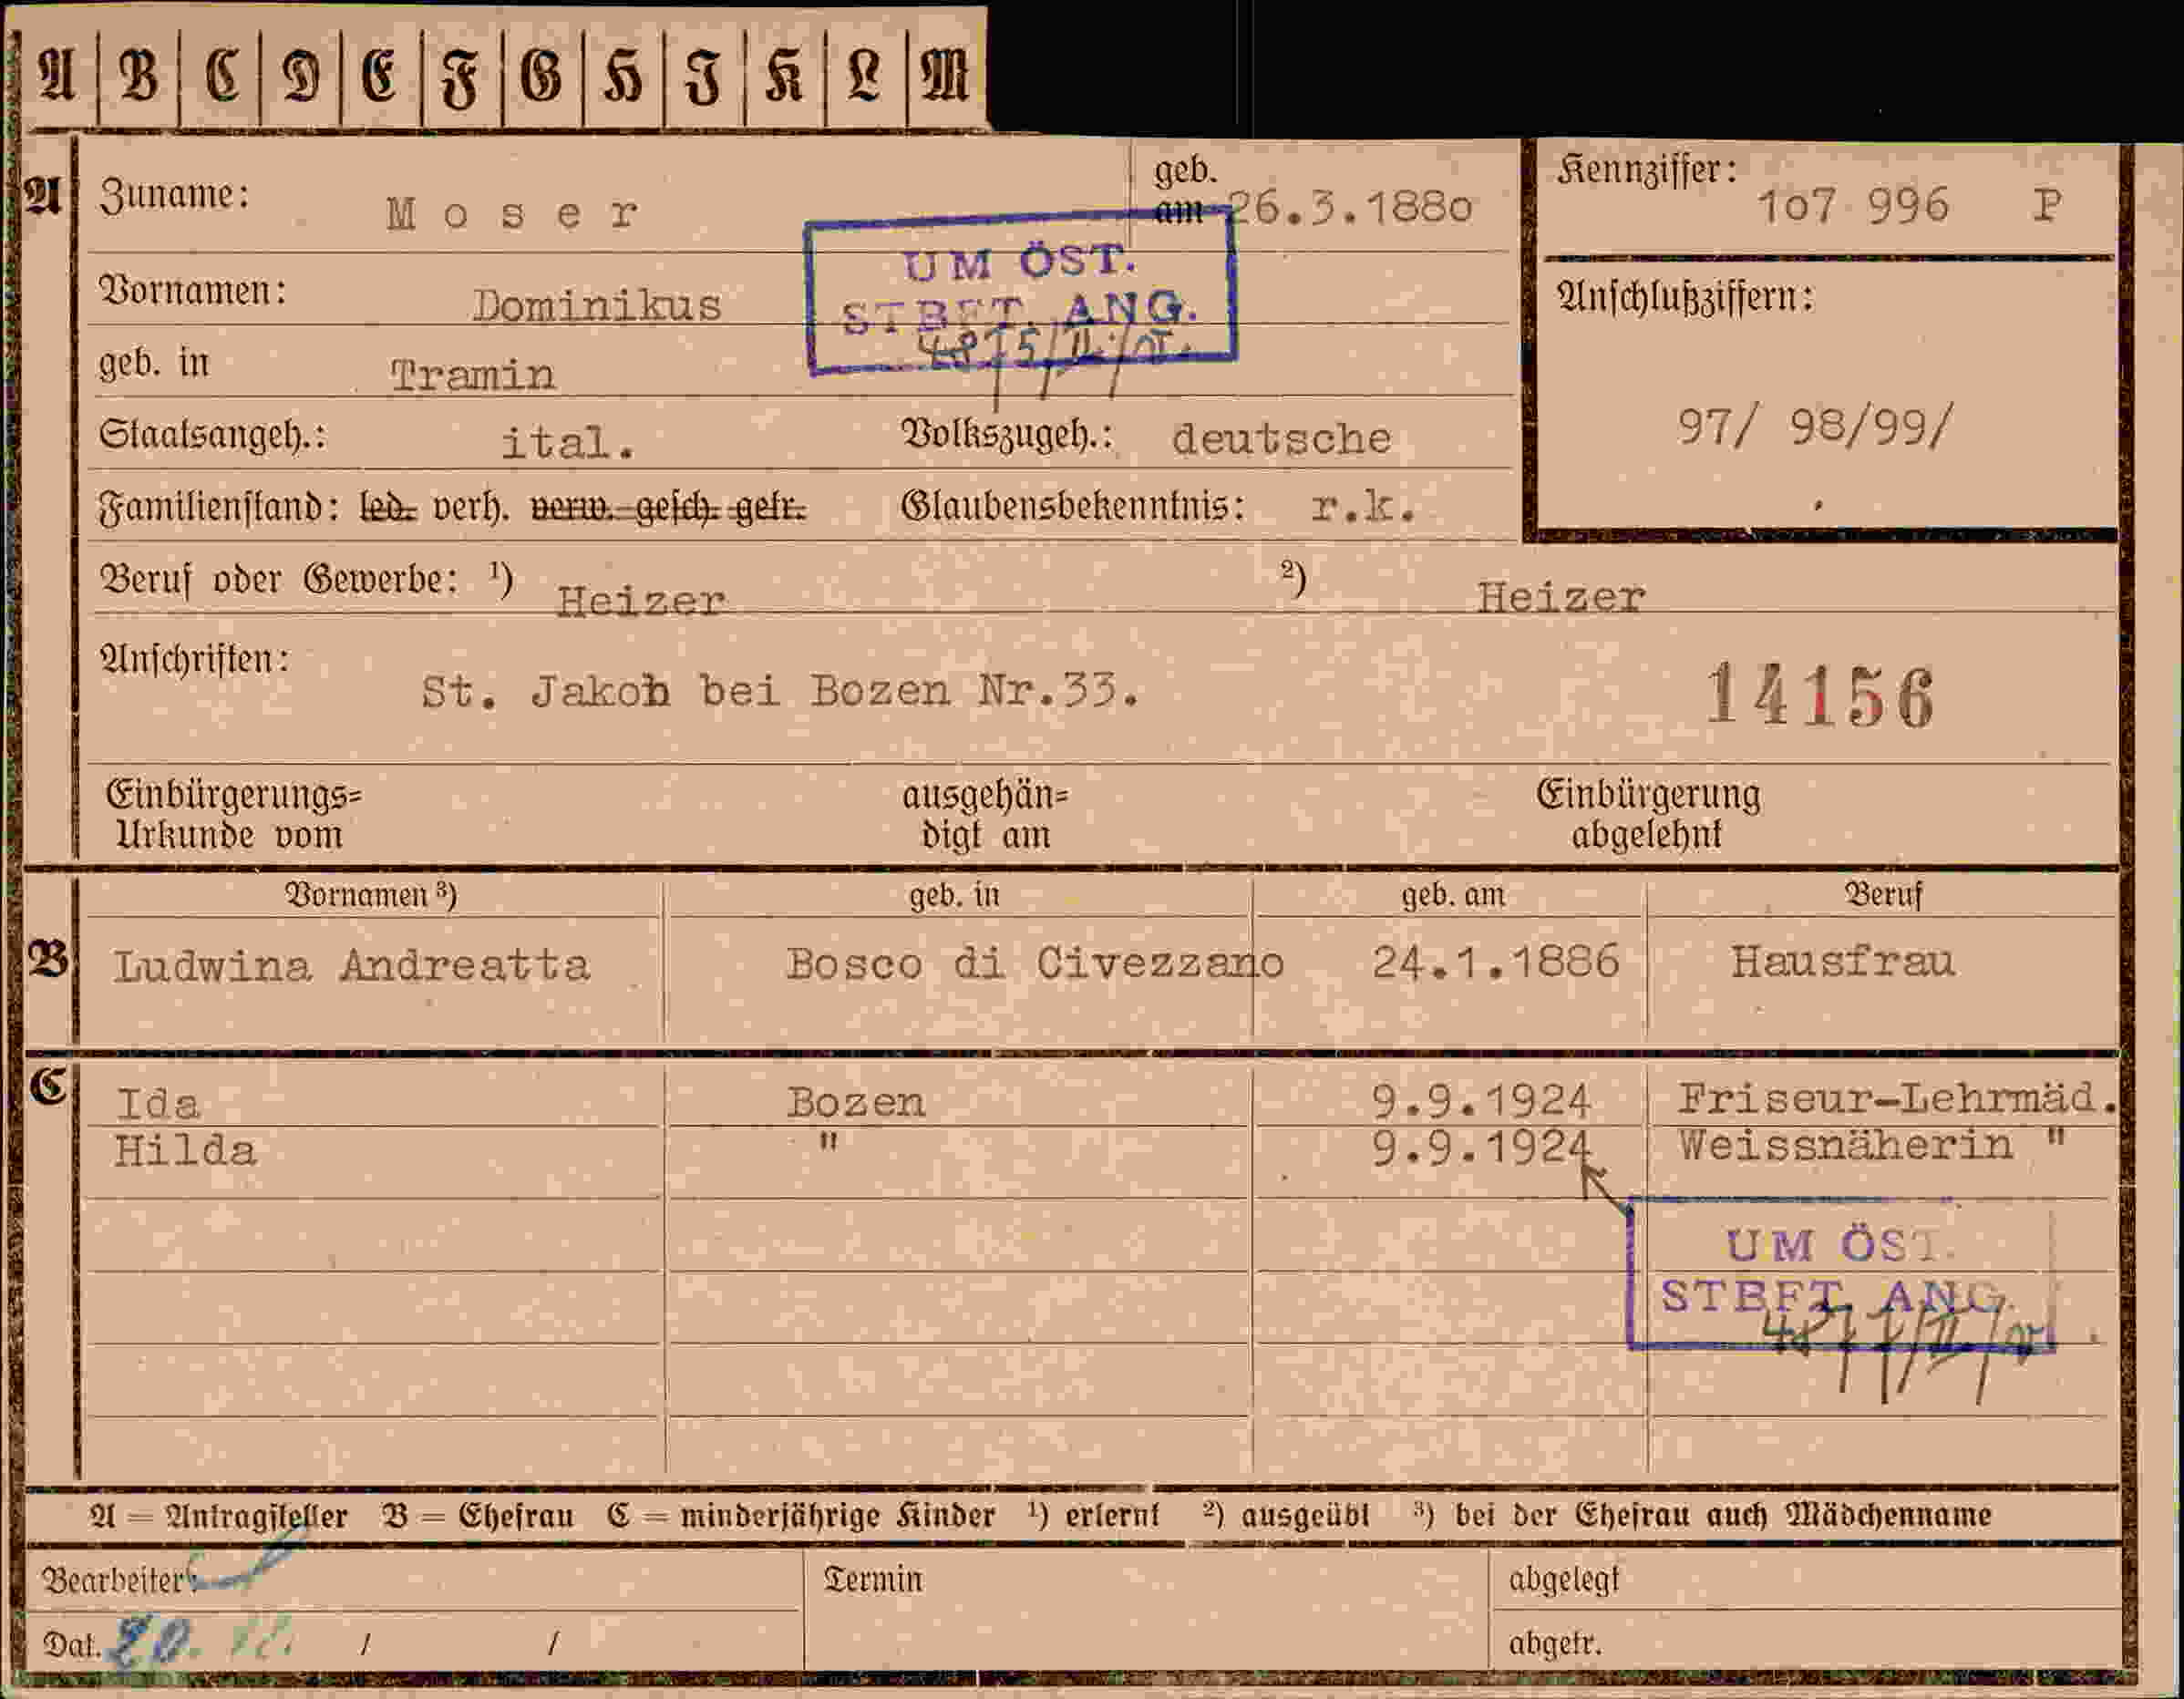 A B C D E F G H I K L M
A Zuname: Moser geb. am 26.3.1880 Kennziffer: 107 996 P
UM ÖST.
STBFT. ANG.
Vornamen: Dominikus Anschlußziffern:
geb. in Tramin
97/ 98/99/
Staatsangeh.: ital. Volkszugeh.: deutsche
Familienstand: led. verh. verw. gesch. getr. Glaubensbekenntnis: r.k.
Beruf oder Gewerbe: 1) Heizer 2) Heizer
Anschriften: St. Jakob bei Bozen Nr.33. 14156
Einbürgerungs= ausgehän= Einbürgerung
Urkunde vom digt am abgelehnt
Vornamen 3) geb. in geb. am Beruf
B Ludwina Andreatta Bosco di Civezzano 24.1.1886 Hausfrau
C Ida Bozen 9.9.1924 Friseur-Lehrmäd.
Hilda " 9.9.1924 Weissnäherin "
UM ÖST.
STBFT. ANG.
A = Antragsteller B = Ehefrau C = minderjährige Kinder 1) erlernt 2) ausgeübt 3) bei der Ehefrau auch Mädchenname
Bearbeiter: Termin abgelegt
Dat. 20. 12. / / abgetr.